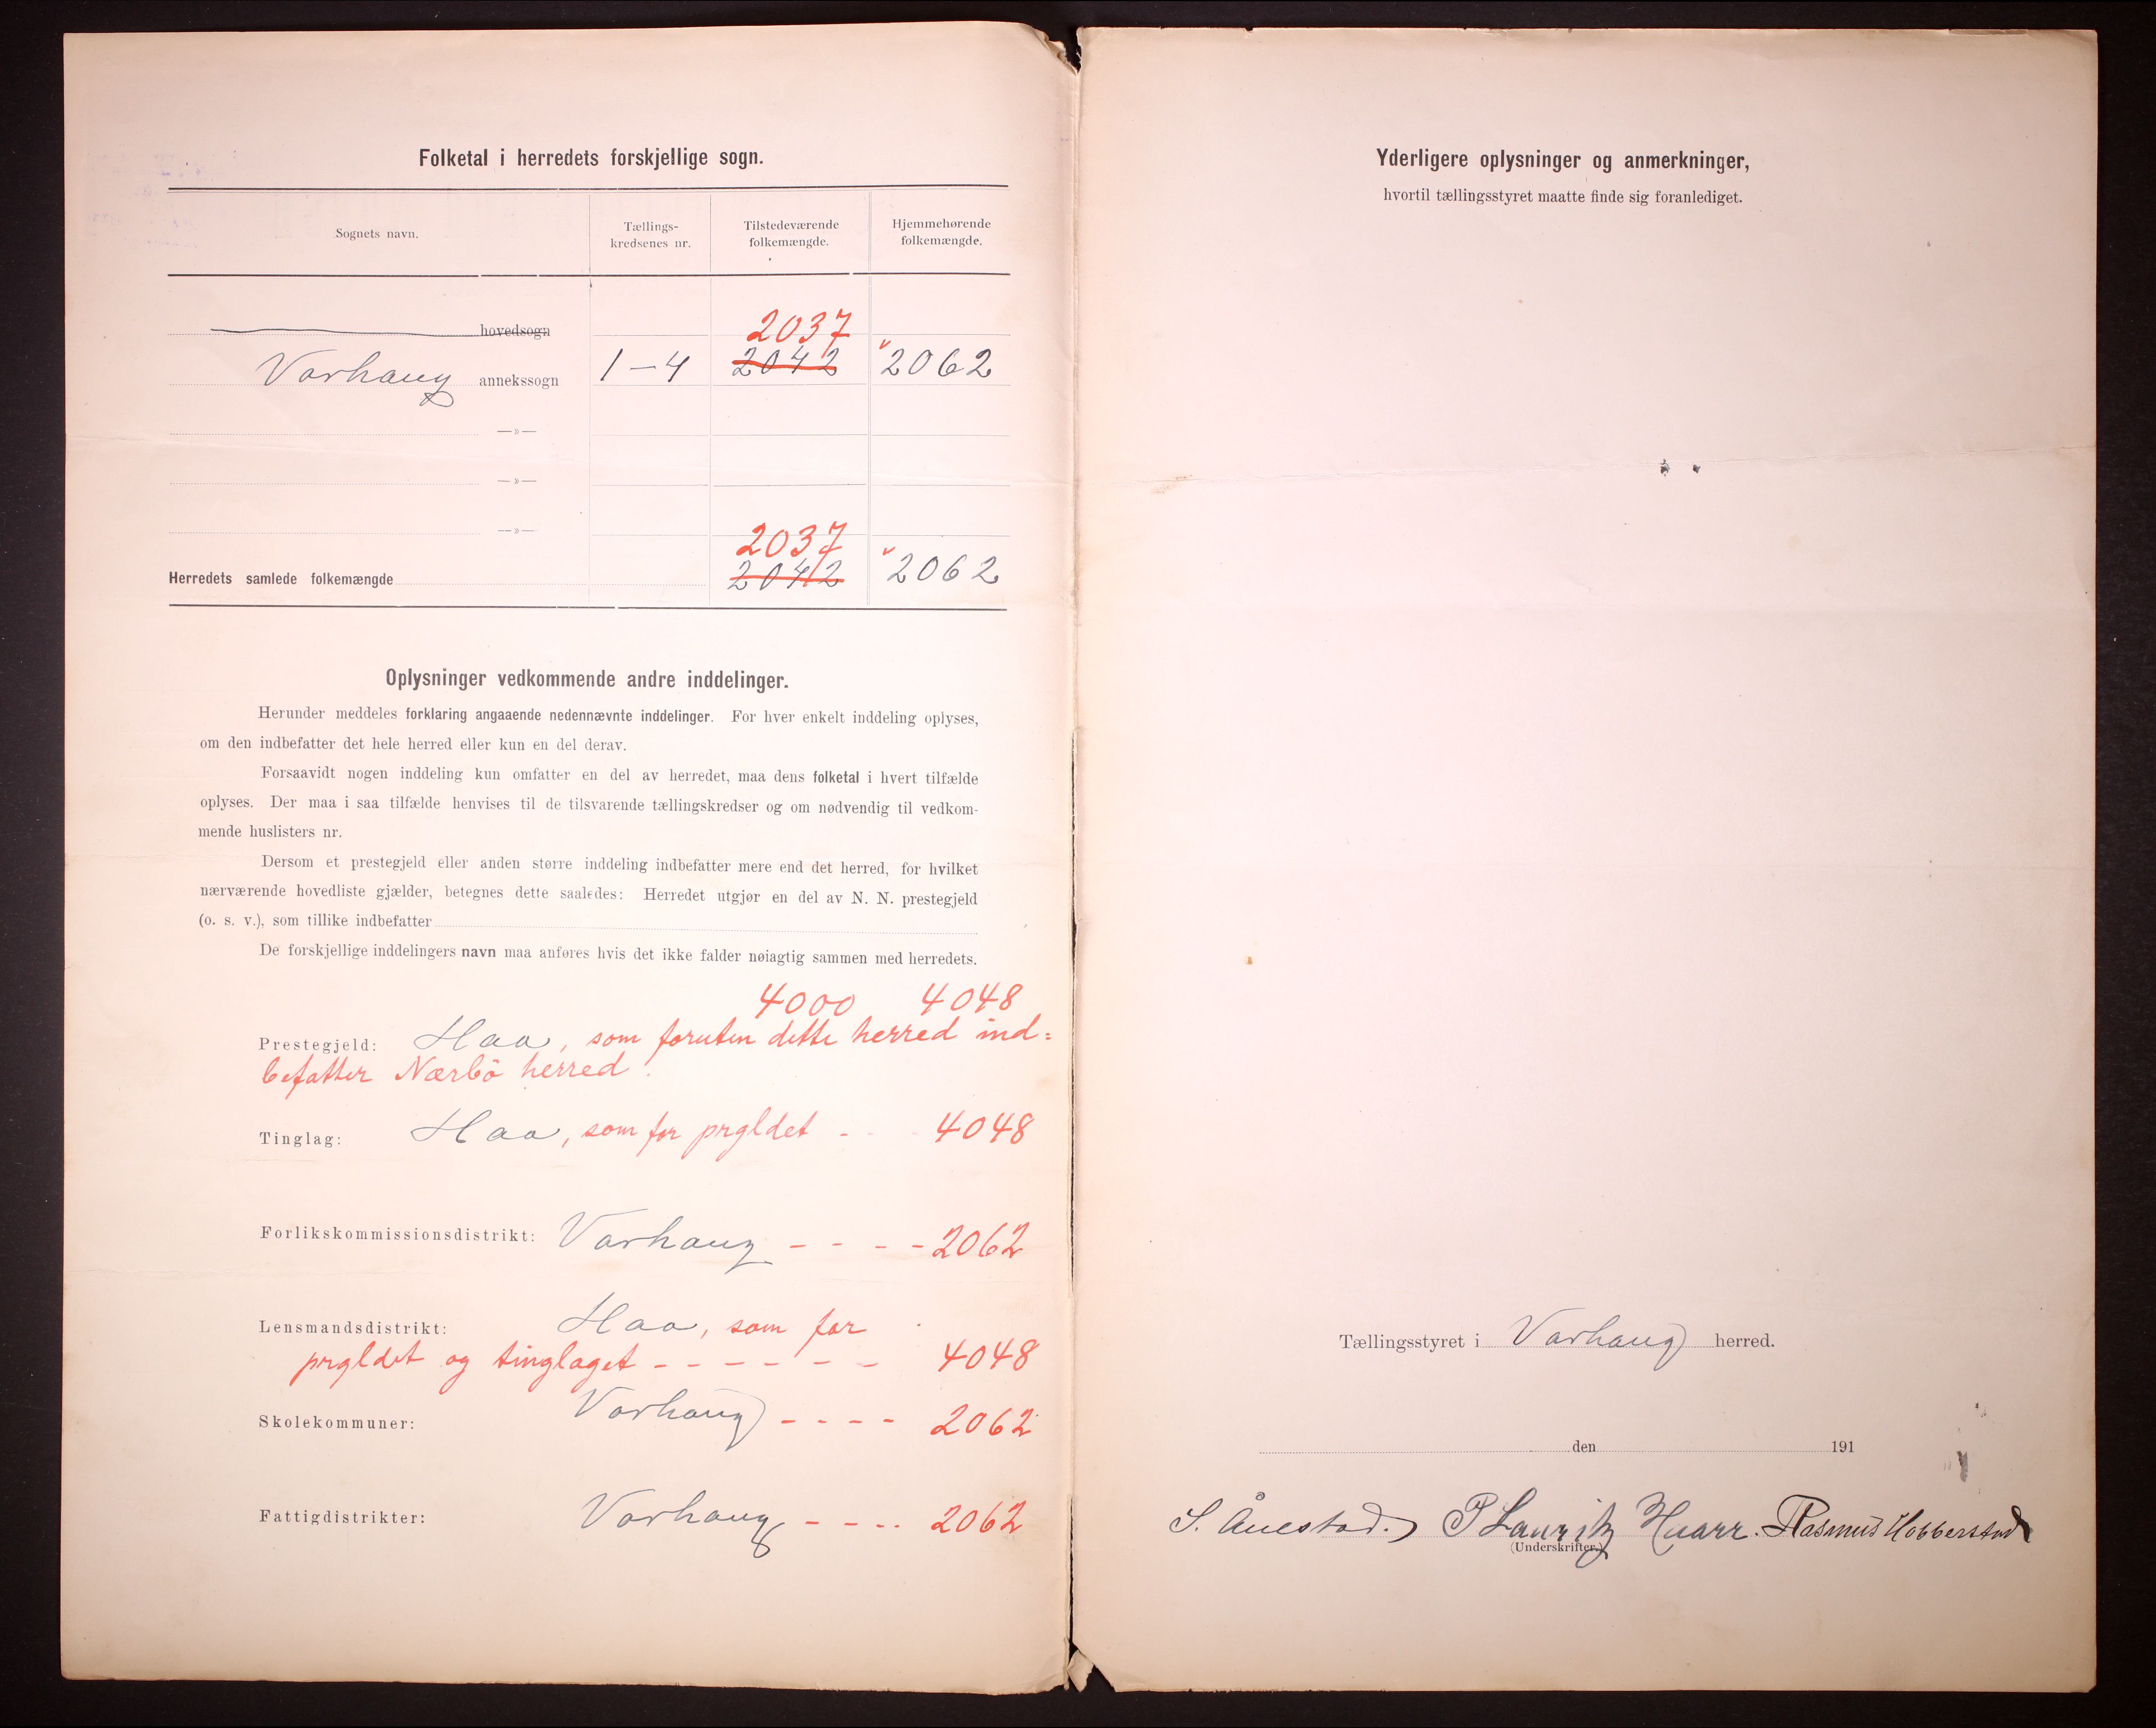 Folketal i herredets forskjellige sogn.
Sognets navn.
Tællings-
kredsenes nr.
Tilstedeværende
folkemængde.
Hjemmehørende
folkemængde.
hovedsogn
2037
Varhaug annekssogn 1–4 2042 2062
—»—
—»—
—»—
2037
Herredets samlede folkemængde 2042 2062
Oplysninger vedkommende andre inddelinger.
Herunder meddeles forklaring angaaende nedennævnte inddelinger. For hver enkelt inddeling oplyses,
om den indbefatter det hele herred eller kun en del derav.
Forsaavidt nogen inddeling kun omfatter en del av herredet, maa dens folketal i hvert tilfælde
oplyses. Der maa i saa tilfælde henvises til de tilsvarende tællingskredser og om nødvendig til vedkom-
mende huslisters nr.
Dersom et prestegjeld eller anden større inddeling indbefatter mere end det herred, for hvilket
nærværende hovedliste gjælder, betegnes dette saaledes: Herredet utgjør en del av N. N. prestegjeld
(o. s. v.), som tillike indbefatter
De forskjellige inddelingers navn maa anføres hvis det ikke falder nøiagtig sammen med herredets.
4000 4048
Prestegjeld: Haa, som foruten dette herred ind=
befatter Nærbö herred.
Tinglag: Haa, som for prgldet - - - 4048
Forlikskommissionsdistrikt: Varhaug - - - - 2062
Lensmandsdistrikt: Haa, som for
prgldet og tinglaget - - - - - - - 4048
Skolekommuner: Varhaug - - - - 2062
Fattigdistrikter: Varhaug - - - - 2062
Yderligere oplysninger og anmerkninger,
hvortil tællingsstyret maatte finde sig foranlediget.
Tællingsstyret i Varhaug herred.
den 191
S. Ånestad. P Lauritz Huarr. Rasmus Hobberstad
(Underskrifter.)